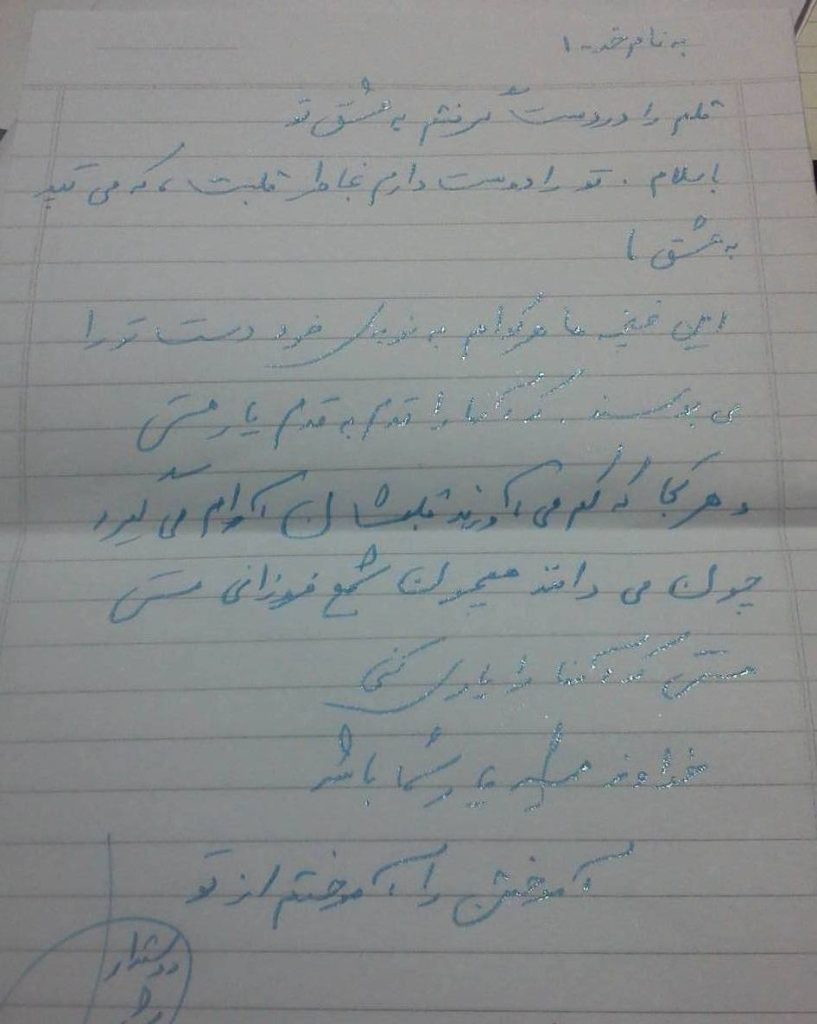 به نام خدا
قلم را در دست گرفتم به عشق تو
با سلام. تو را دوست دارم بخاطر قلبت، که می تپد
به عشق ما
این غنچه ها هرکدام به نوبه‌ی خود دست تو را
می بوسند. که آنها را قدم به قدم یار هستی
و هر کجا که کم می آورند قلبشان آرام می گیرد
چون می دانند همچون شمع فروزانی هستی
هستی که آنها را یاری کنی
خداوند یار شما باشد
آموختن را آموختم از تو
دوستدار